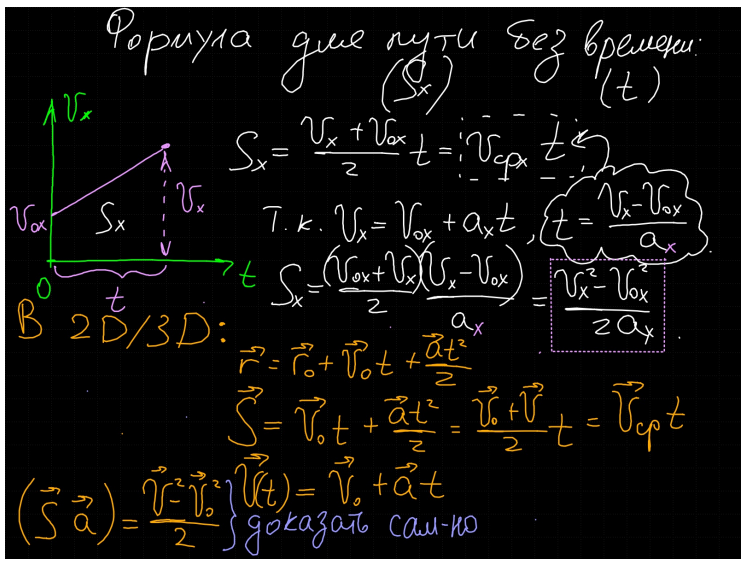 Формула для пути без времени:
(Sₓ) (t)
Vₓ
V₀ₓ
Sₓ
Vₓ
0
t
t
Sₓ = (Vₓ + V₀ₓ)/2 t = Vсрₓ t
Т.к. Vₓ = V₀ₓ + aₓt, t = (Vₓ - V₀ₓ)/aₓ
Sₓ = (V₀ₓ + Vₓ)/2 (Vₓ - V₀ₓ)/aₓ = (Vₓ² - V₀ₓ²)/(2aₓ).
В 2D/3D:
r⃗ = r⃗₀ + V⃗₀t + a⃗t²/2
S⃗ = V⃗₀t + a⃗t²/2 = (V⃗₀ + V⃗)/2 t = V⃗ср t
V⃗(t) = V⃗₀ + a⃗t
(S⃗ a⃗) = (V⃗² - V⃗₀²)/2 } доказать сам-но